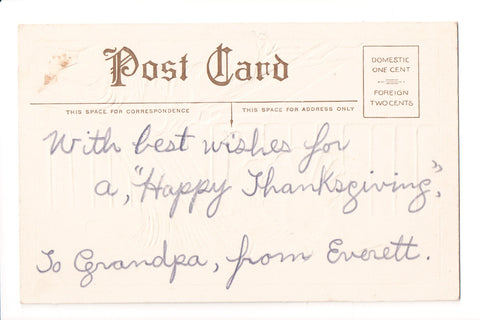 Post Card
DOMESTIC
ONE CENT
FOREIGN
TWO CENTS
THIS SPACE FOR CORRESPONDENCE
THIS SPACE FOR ADDRESS ONLY
With best wishes for
a, "Happy Thanksgiving,"
To Grandpa, from Everett.